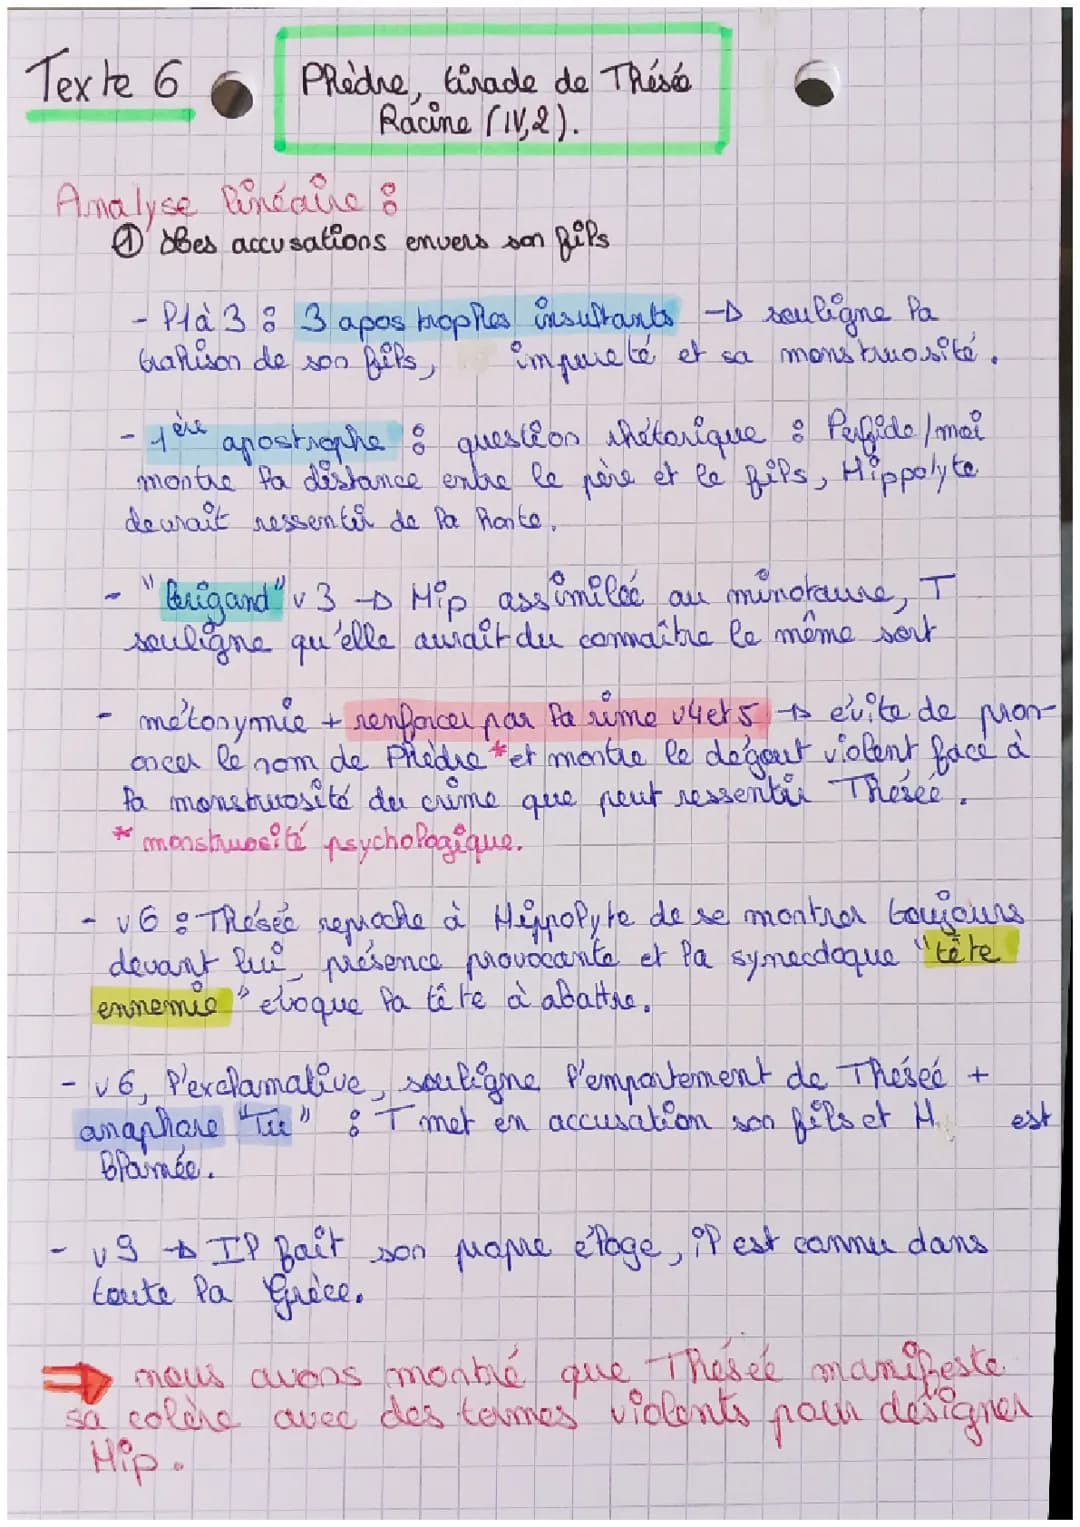 Texte 6
Phèdre, tirade de Thésé
Racine (IV,2).
Analyse linéaire :
① Des accusations envers son fils
- l1 à 3 : 3 apostrophes insultants → souligne la
trahison de son fils, impureté et sa monstruosité.
- 1ère apostrophe : question rhétorique : Perfide/moi
montre la distance entre le père et le fils, Hippolyte
devrait ressentir de la honte.
- "brigand" v 3 → Hip assimilée au minotaure, T
souligne qu'elle aurait du connaître le même sort
- métonymie + renforcer par la rime v4 et 5 → évite de pron-
oncer le nom de Phèdre * et montre le dégout violent face à
la monstruosité du crime que peut ressentir Theseé.
* monstruosité psychologique.
- v6 : Theseé reproche à Hippolyte de se montrer toujours
devant lui, présence provocante et la synecdoque "tête
ennemie" evoque la tête à abattre.
- v6, l'exclamative, souligne l'emportement de Theseé +
anaphore "Tu" : T met en accusation son fils et H. est
Blamée.
- v9 → Il fait son propre éloge, il est connu dans
toute la Grèce.
⇒ nous avons montré que Theseé manifeste
sa colère avec des termes violents pour designer
Hip.